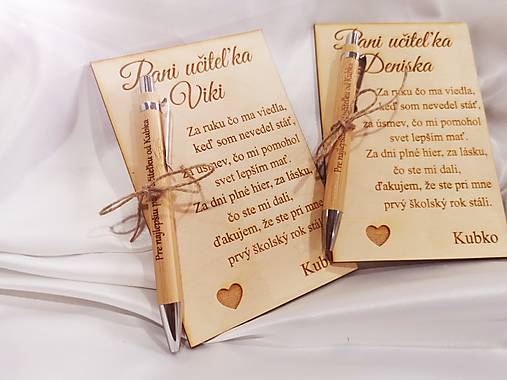 Pani učiteľka
Viki
Za ruku čo ma viedla,
keď som nevedel stáť,
za úsmev, čo mi pomohol
svet lepším mať.
Za dni plné hier, za lásku,
čo ste mi dali,
ďakujem, že ste pri mne
prvý školský rok stáli.
Kubko
Pre najlepšiu učiteľku od Kubka
Pani učiteľka
Deniska
Za ruku čo ma viedla,
keď som nevedel stáť,
za úsmev, čo mi pomohol
svet lepším mať.
Za dni plné hier, za lásku,
čo ste mi dali,
ďakujem, že ste pri mne
prvý školský rok stáli.
Kubko
Pre najlepšiu učiteľku od Kubka